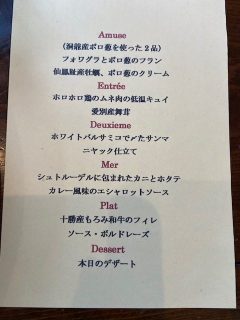 Amuse
(洞爺産ポロ葱を使った2品)
フォワグラとポロ葱のフラン
仙鳳趾産牡蠣、ポロ葱のクリーム
Entrée
ホロホロ鶏のムネ肉の低温キュイ
愛別産舞茸
Deuxieme
ホワイトバルサミコで〆たサンマ
ニヤック仕立て
Mer
シュトルーデルに包まれたカニとホタテ
カレー風味のエシャロットソース
Plat
十勝産もろみ和牛のフィレ
ソース・ボルドレーズ
Dessert
本日のデザート